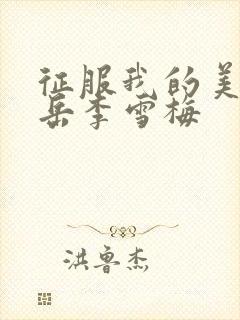 征服我的美
岳李雪梅
洪鲁杰